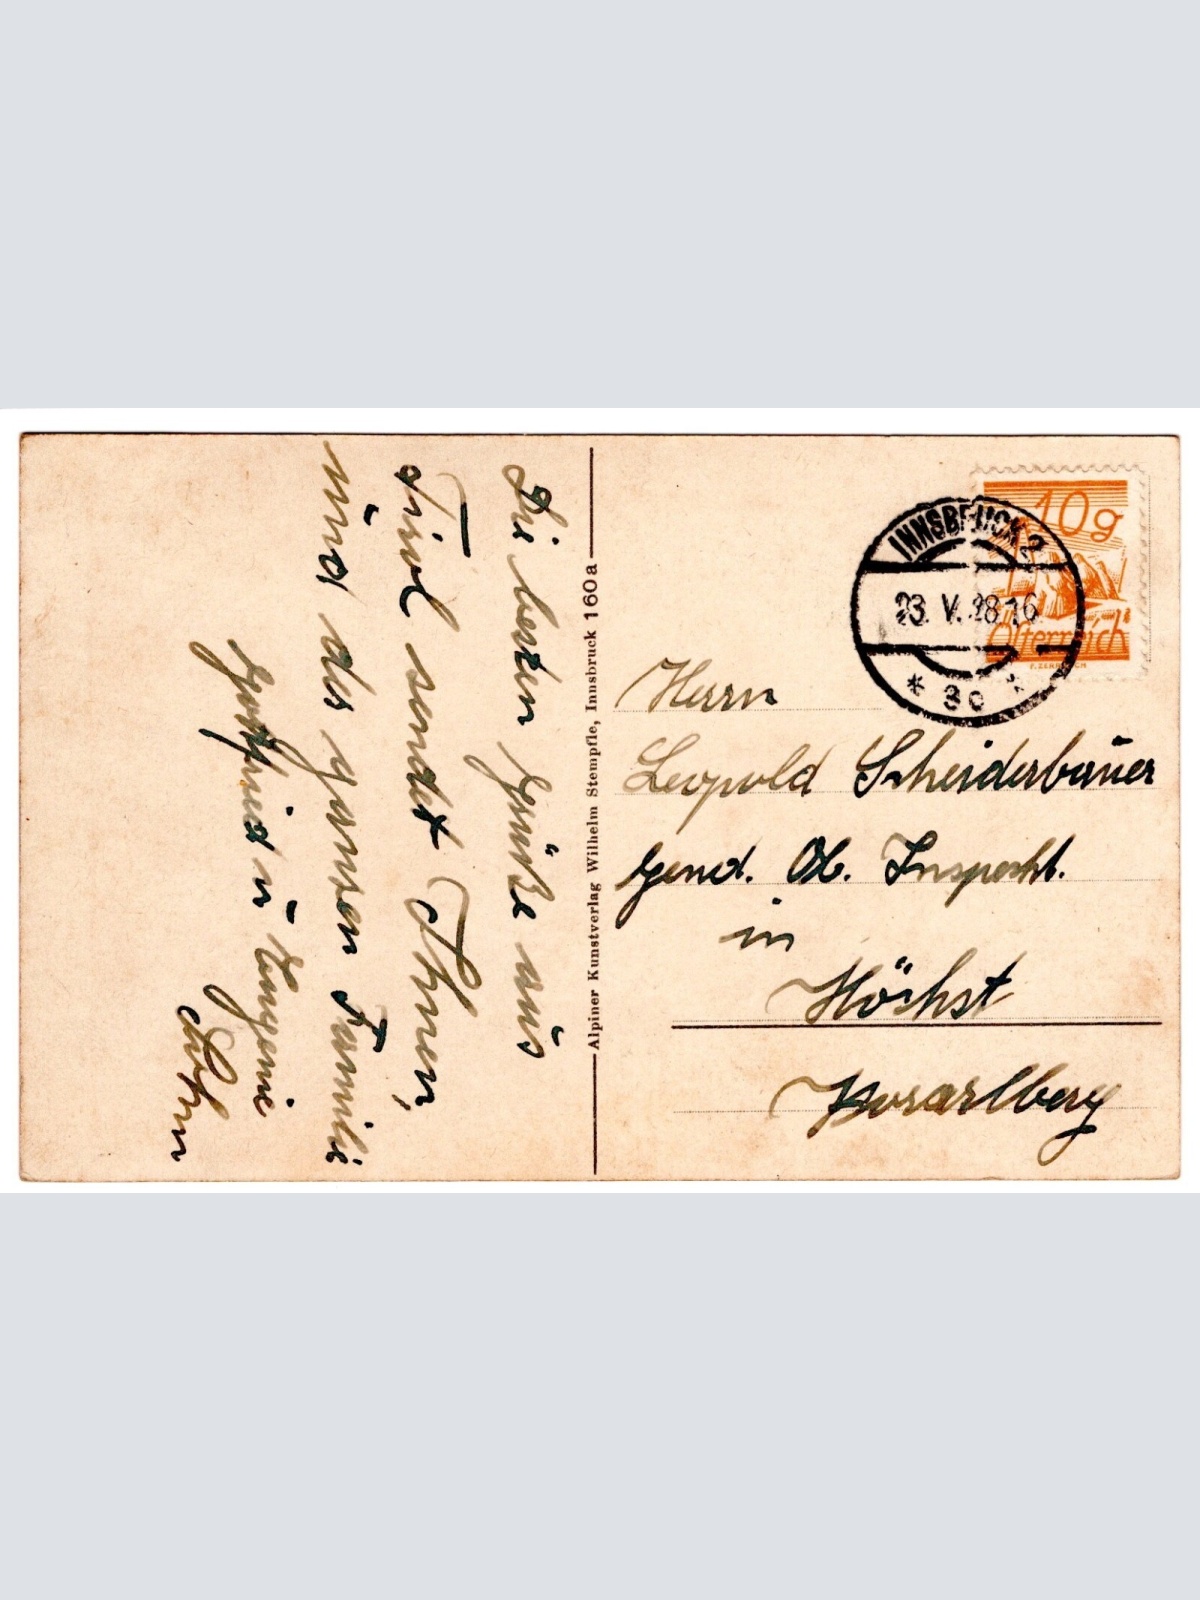 Die besten Grüße aus
Tirol sendet Ihnen,
und der ganzen Familie
Gottfried u Eugenie
Alpiner Kunstverlag Wilhelm Stempfle, Innsbruck 160a
10g
Österreich
INNSBRUCK 2
23. V. 28 16
* 3c *
Herrn
Leopold Scheiderbauer
Gend. Ob. Inspekt.
in
Höchst
Vorarlberg